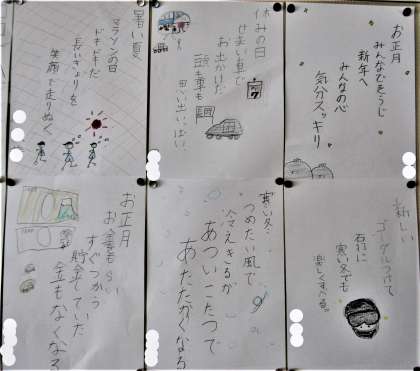 お正月
みんなでそうじ
新年へ
みんなの心
気分スッキリ
休みの日
せまい車で
お出かけだ
頭も車も
思い出いっぱい
暑い夏
マラソンの日
ドキドキだ
長いきょりを
笑顔で走りぬく
新しい
ゴーグルつけて
石打に
寒い冬でも
楽しくすべる。
寒い冬
つめたい風で
冷えきるが
あついこたつで
あたたかくなる
お正月
お金をもらい
すぐつかう
貯金していた
金もなくなる